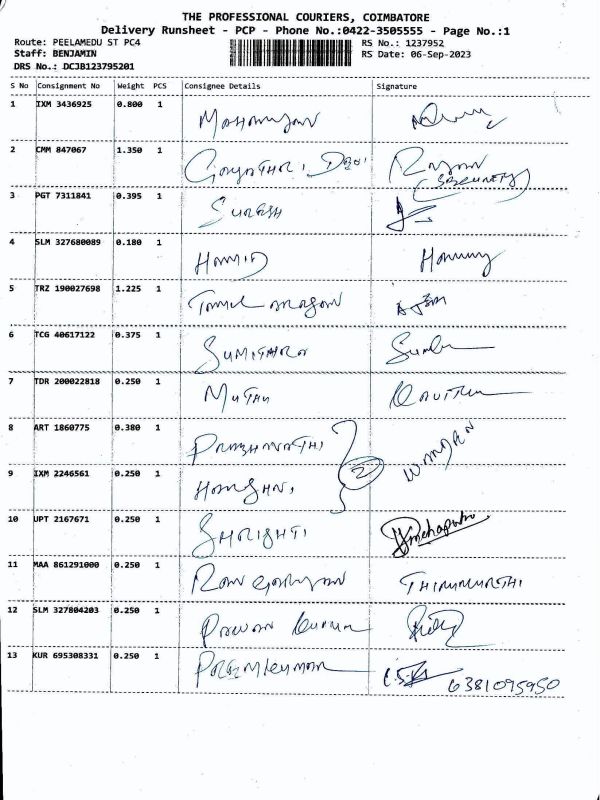 THE PROFESSIONAL COURIERS, COIMBATORE
Delivery Runsheet - PCP - Phone No.:0422-3505555 - Page No.:1
Route: PEELAMEDU ST PC4 RS No.: 1237952
Staff: BENJAMIN RS Date: 06-Sep-2023
DRS No.: DCJB123795201
S No Consignment No Weight PCS Consignee Details Signature
1 IXM 3436925 0.800 1
2 CMM 847067 1.350 1 Gayathri Devi
(SECURITY)
3 PGT 7311841 0.395 1 SURESH
4 SLM 327680089 0.180 1 HAMID
5 TRZ 190027698 1.225 1
6 TCG 40617122 0.375 1 SUMITHRA
7 TDR 200022818 0.250 1 MUTHU
8 ART 1860775 0.380 1 PRABHAVATHI
2
9 IXM 2246561 0.250 1
10 UPT 2167671 0.250 1 SHRISHTI
11 MAA 861291000 0.250 1 THIRUMURTHI
12 SLM 327804203 0.250 1 Pawan Kumar
13 KUR 695308331 0.250 1 Premkumar 6381095950